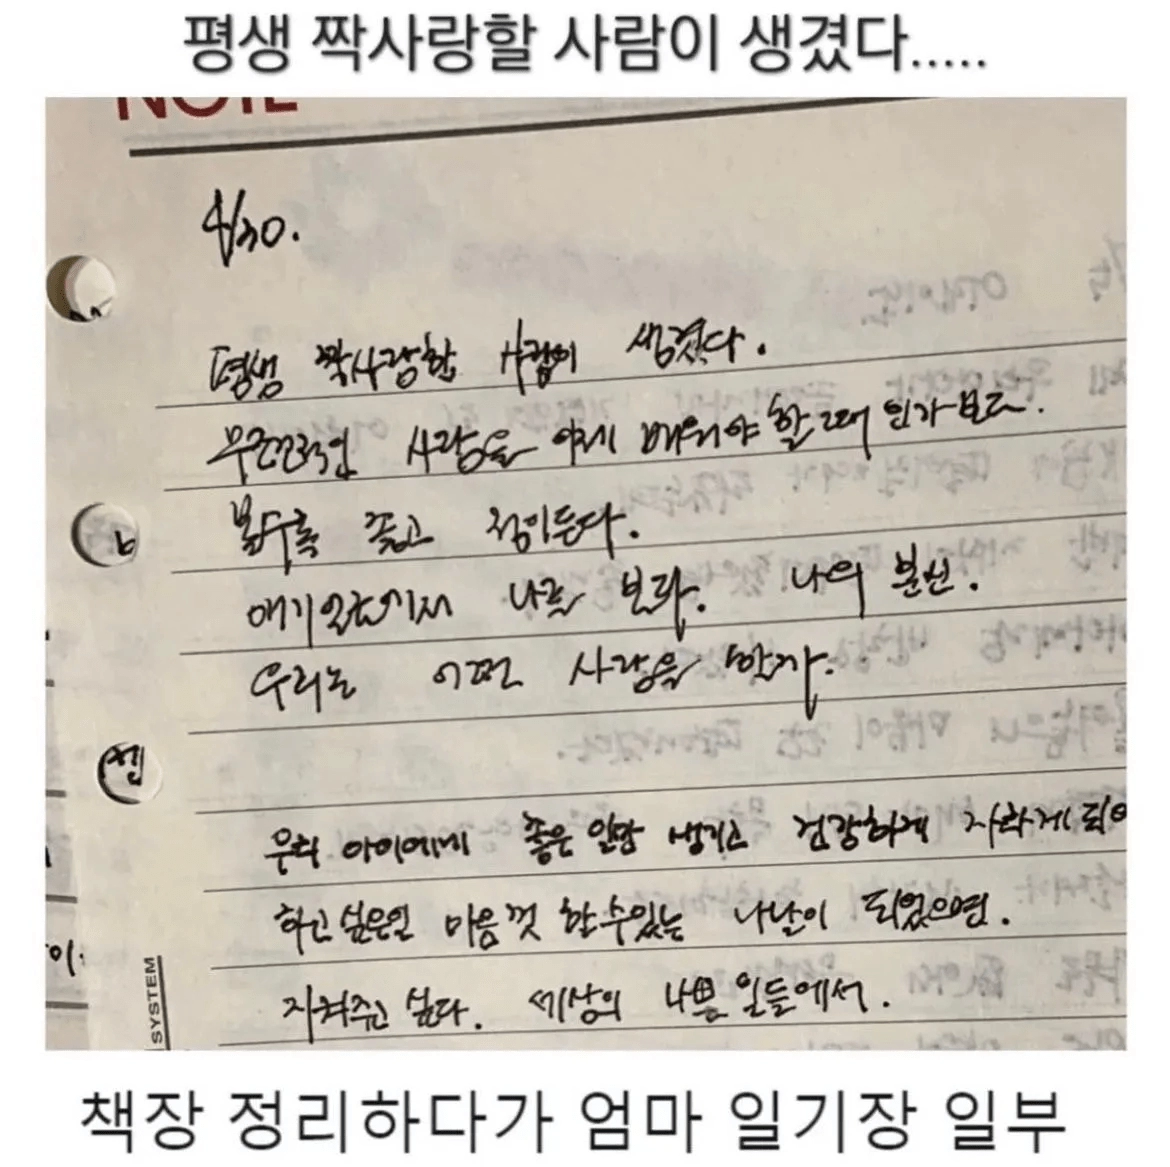 평생 짝사랑할 사람이 생겼다.....
NOTE
4/30.
평생 짝사랑할 사람이 생겼다.
무조건적인 사랑을 이제 배워야 할 때 인가보다.
볼수록 좋고 정이든다.
애기 얼굴에서 나를 보라. 나의 분신.
우리는 어떤 사랑을 할까.
우리 아이에게 좋은 일만 생기고 건강하게 자라게 되어
하고 싶은일 마음껏 할 수 있는 나날이 되었으면.
지켜주고 싶다. 세상의 나쁜 일들에서.
SYSTEM
책장 정리하다가 엄마 일기장 일부